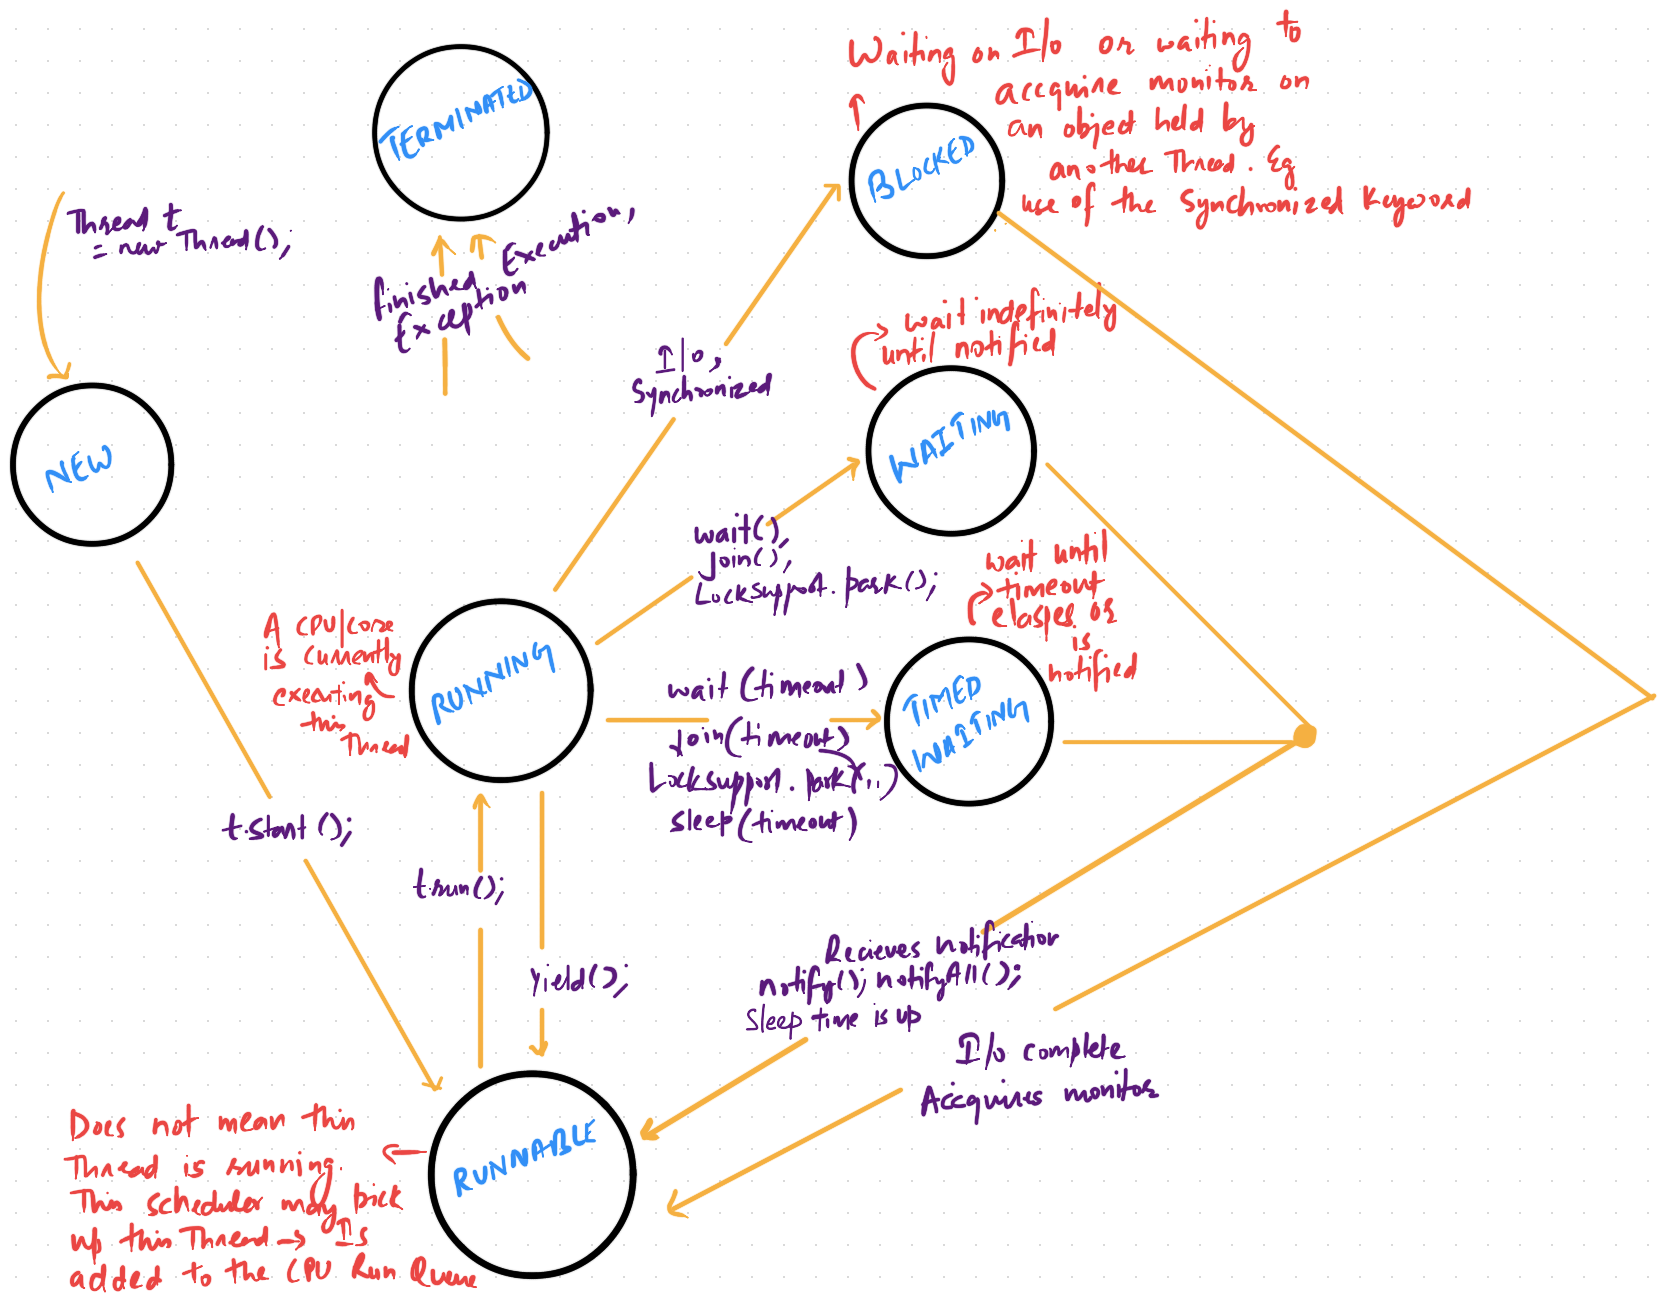 Waiting on I/o or waiting to
accquire monitor on
an object held by
another Thread. Eg
use of the Synchronized Keyword
TERMINATED
BLOCKED
Thread t
= new Thread();
finished Execution,
Exception
wait indefinitely
until notified
I/o,
Synchronized
NEW
WAITING
wait(),
join(),
LockSupport.park();
wait until
timeout
elaspes or
is
notified
A CPU/core
is currently
executing
this
Thread
RUNNING
wait(timeout)
join(timeout)
LockSupport.park(,,)
sleep(timeout)
TIMED
WAITING
t.start();
t.run();
yield();
Recieves notification
notify(); notifyAll();
Sleep time is up
I/o complete
Accquires monitor
Does not mean this
Thread is running.
This scheduler may pick
up this Thread → Is
added to the CPU Run Queue
RUNNABLE